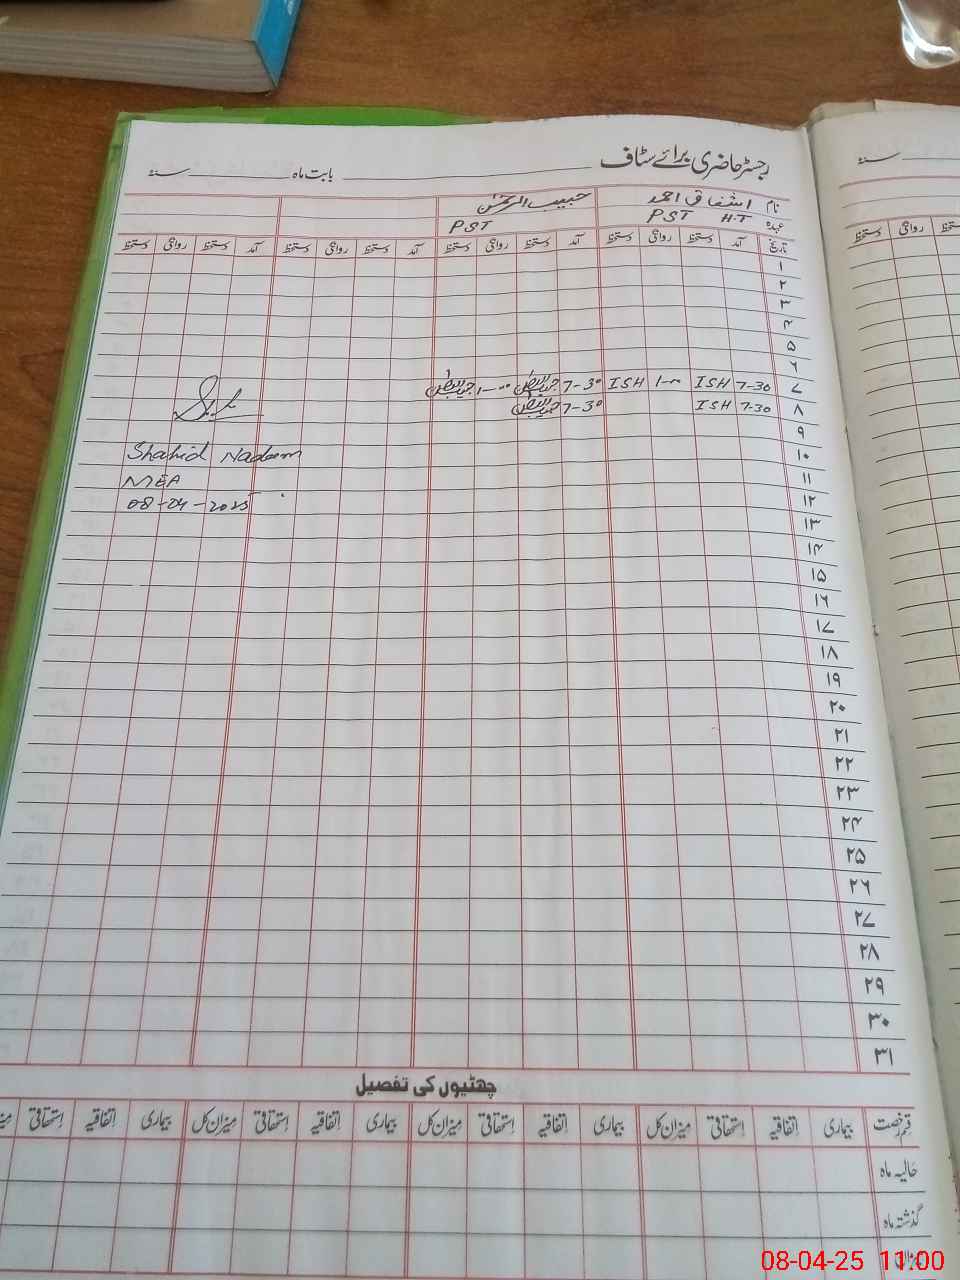 رجسٹر حاضری برائے سٹاف
بابت ماہ ________ سنہ
نام اشفاق احمد حبیب الرحمٰن
عہدہ PST H.T PST
تاریخ آمد دستخط روانگی دستخط آمد دستخط روانگی دستخط آمد دستخط روانگی دستخط آمد دستخط روانگی دستخط
۱
۲
۳
۴
۵
۶
۷ 7-30 ISH 1-00 ISH 7-30 1-00
۸ 7-30 ISH 7-30
۹
۱۰
۱۱
۱۲
۱۳
۱۴
۱۵
۱۶
۱۷
۱۸
۱۹
۲۰
۲۱
۲۲
۲۳
۲۴
۲۵
۲۶
۲۷
۲۸
۲۹
۳۰
۳۱
Shahid Nadeem
MEA
08-04-2025
چھٹیوں کی تفصیل
قسم رخصت بیماری اتفاقیہ استحقاقی میزان کل بیماری اتفاقیہ استحقاقی میزان کل بیماری اتفاقیہ استحقاقی میزان کل بیماری اتفاقیہ استحقاقی
حالیہ ماہ
گذشتہ ماہ
08-04-25 11:00